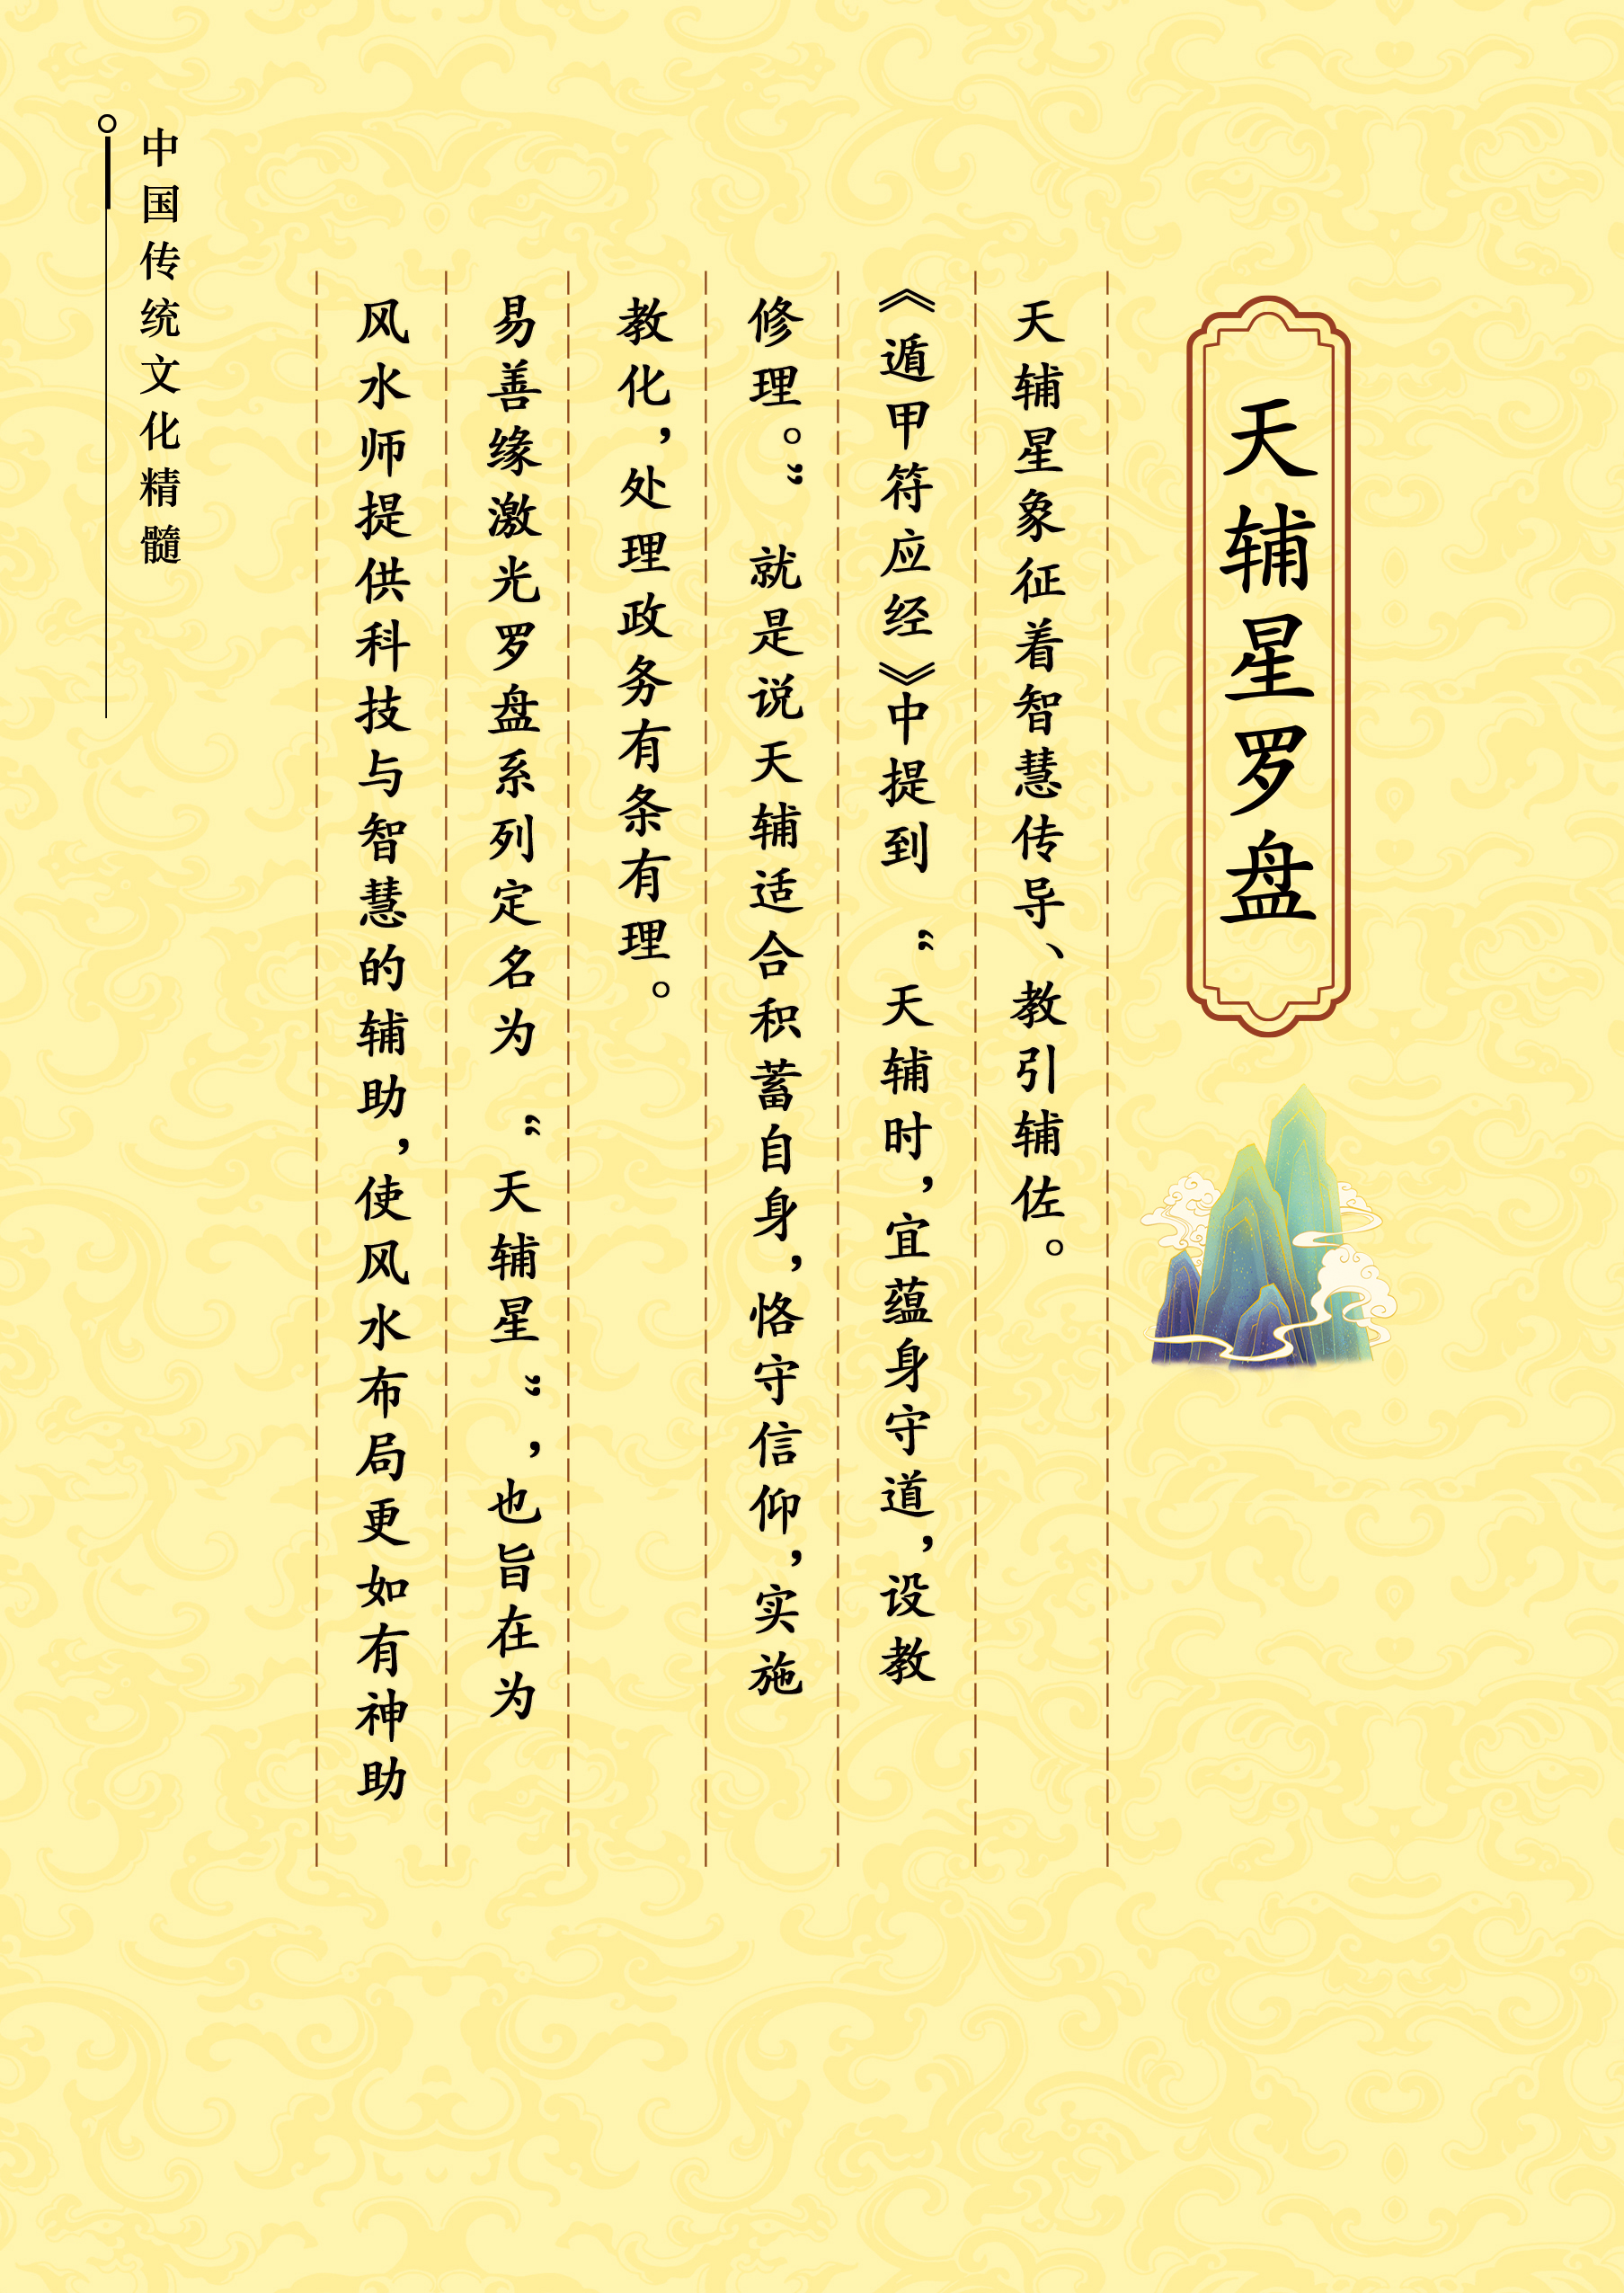 天辅星罗盘
天辅星象征着智慧传导、教引辅佐。
《遁甲符应经》中提到“天辅时，宜蕴身守道，设教
修理。”就是说天辅适合积蓄自身，恪守信仰，实施
教化，处理政务有条有理。
易善缘激光罗盘系列定名为“天辅星”，也旨在为
风水师提供科技与智慧的辅助，使风水布局更如有神助
中国传统文化精髓